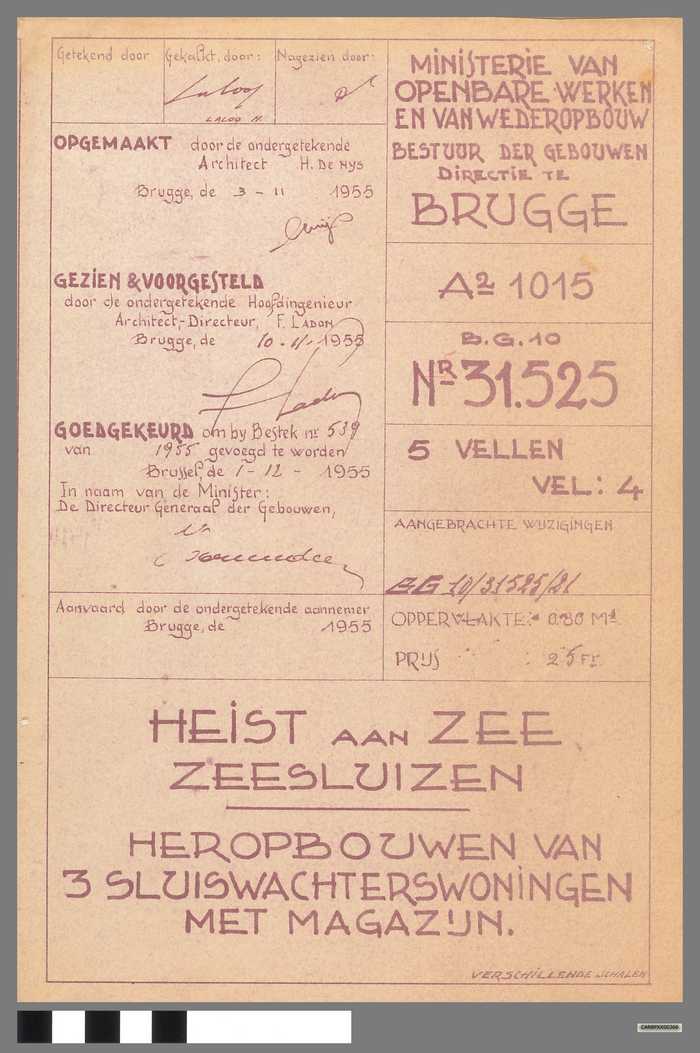 Getekend door
Gekalkt, door:
LALOO H.
Nagezien door:
OPGEMAAKT door de ondergetekende
Architect H. DE NYS
Brugge, de 3 - 11 1955
GEZIEN & VOORGESTELD
door de ondergetekende Hoofdingenieur
Architect,- Directeur, F. LADON
Brugge, de 10-11-1955
GOEDGEKEURD om by Bestek nr 539
van 1955 gevoegd te worden
Brussel, de 1 - 12 - 1955
In naam van de Minister:
De Directeur Generaal der Gebouwen,
Aanvaard door de ondergetekende aannemer
Brugge, de 1955
MINISTERIE VAN
OPENBARE WERKEN
EN VAN WEDEROPBOUW
BESTUUR DER GEBOUWEN
DIRECTIE TE
BRUGGE
A2 1015
B.G. 10
NR 31.525
5 VELLEN
VEL: 4
AANGEBRACHTE WIJZIGINGEN
BG 10/31525/21
OPPERVLAKTE: 0.80 M2
PRIJS : 25 Fr.
HEIST AAN ZEE
ZEESLUIZEN
HEROPBOUWEN VAN
3 SLUISWACHTERSWONINGEN
MET MAGAZIJN.
VERSCHILLENDE SCHALEN